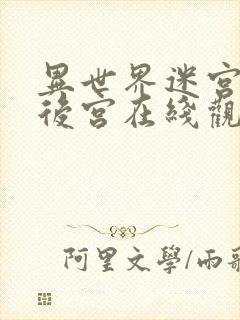 異世界迷宮
後宮在綫觀
阿里文學/雨歌